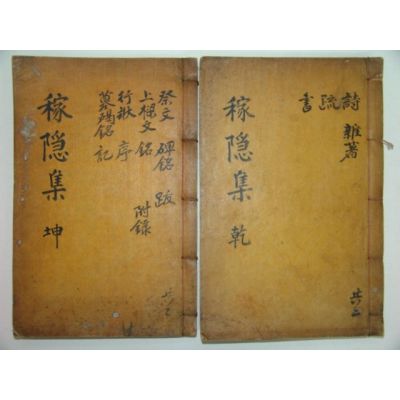 詩 雜著
疏
書
稼隐集 乾
共二
祭文 碑銘 跋
上樑文 銘 附錄
行狀 序
墓碣銘 記
稼隐集 坤
共二